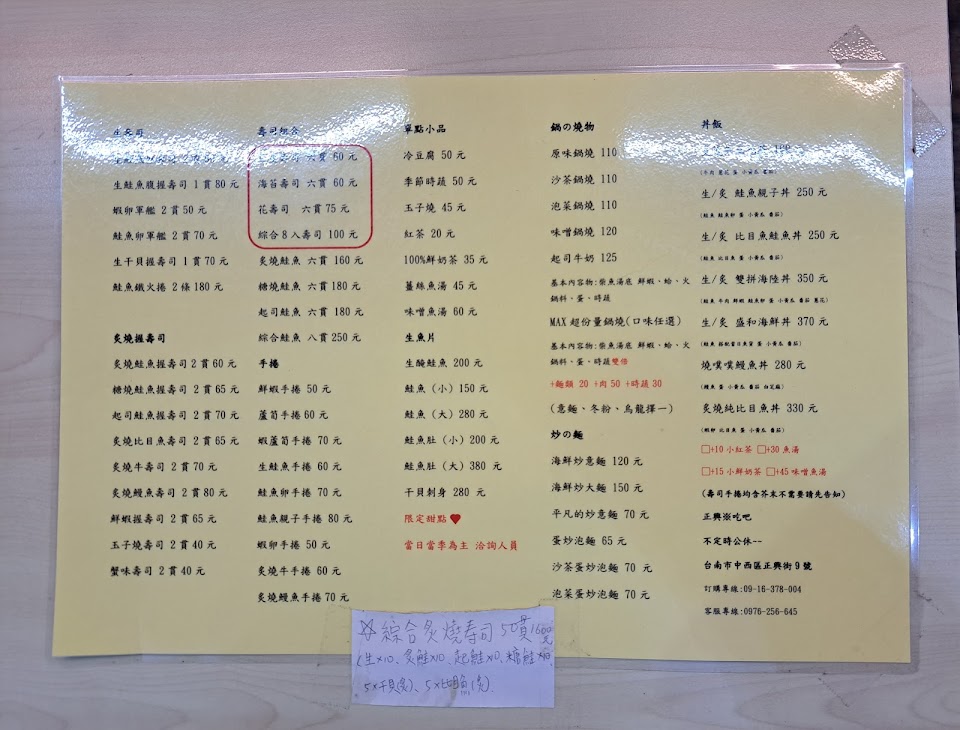 生壽司
生鮭魚腹握壽司 1 貫 80 元
蝦卵軍艦 2 貫 50 元
鮭魚卵軍艦 2 貫 70 元
生干貝握壽司 1 貫 70 元
鮭魚鐵火捲 2 條 180 元
炙燒握壽司
炙燒鮭魚握壽司 2 貫 60 元
糖燒鮭魚握壽司 2 貫 65 元
起司鮭魚握壽司 2 貫 70 元
炙燒比目魚壽司 2 貫 65 元
炙燒牛壽司 2 貫 70 元
炙燒鰻魚壽司 2 貫 80 元
鮮蝦握壽司 2 貫 65 元
玉子燒壽司 2 貫 40 元
蟹味壽司 2 貫 40 元
壽司組合
壽司 六貫 60 元
海苔壽司 六貫 60 元
花壽司 六貫 75 元
綜合8入壽司 100 元
炙燒鮭魚 六貫 160 元
糖燒鮭魚 六貫 180 元
起司鮭魚 六貫 180 元
綜合鮭魚 八貫 250 元
手捲
鮮蝦手捲 50 元
蘆筍手捲 60 元
蝦蘆筍手捲 70 元
生鮭魚手捲 60 元
鮭魚卵手捲 70 元
鮭魚親子手捲 80 元
蝦卵手捲 50 元
炙燒牛手捲 60 元
炙燒鰻魚手捲 70 元
單點小品
冷豆腐 50 元
季節時蔬 50 元
玉子燒 45 元
紅茶 20 元
100%鮮奶茶 35 元
薑絲魚湯 45 元
味噌魚湯 60 元
生魚片
生醃鮭魚 200 元
鮭魚（小）150 元
鮭魚（大）280 元
鮭魚肚（小）200 元
鮭魚肚（大）380 元
干貝刺身 280 元
限定甜點♥
當日當季為主 洽詢人員
鍋の燒物
原味鍋燒 110
沙茶鍋燒 110
泡菜鍋燒 110
味噌鍋燒 120
起司牛奶 125
基本內容物:柴魚湯底 鮮蝦、蛤、火
鍋料、蛋、時蔬
MAX 超份量鍋燒(口味任選)
基本內容物:柴魚湯底 鮮蝦、蛤、火
鍋料、蛋、時蔬雙倍
+麵類 20 +肉 50 +時蔬 30
(意麵、冬粉、烏龍擇一)
炒の麵
海鮮炒意麵 120 元
海鮮炒大麵 150 元
平凡的炒意麵 70 元
蛋炒泡麵 65 元
沙茶蛋炒泡麵 70 元
泡菜蛋炒泡麵 70 元
丼飯
(牛肉 蔥花 蛋 小黃瓜 番茄)
生/炙 鮭魚親子丼 250 元
(鮭魚 鮭魚卵 蛋 小黃瓜 番茄)
生/炙 比目魚鮭魚丼 250 元
(鮭魚 比目魚 蛋 小黃瓜 番茄)
生/炙 雙拼海陸丼 350 元
(鮭魚 牛肉 鮮蝦 鮭魚卵 蛋 小黃瓜 番茄 蔥花)
生/炙 盛和海鮮丼 370 元
(鮭魚 搭配當日魚貨 蛋 小黃瓜 番茄)
燒噗噗鰻魚丼 280 元
(鰻魚 蛋 小黃瓜 番茄 白芝麻)
炙燒純比目魚丼 330 元
(蝦卵 比目魚 蛋 小黃瓜 番茄)
□+10 小紅茶 □+30 魚湯
□+15 小鮮奶茶 □+45 味噌魚湯
(壽司手捲均含芥末不需要請先告知)
正興※吃吧
不定時公休--
台南市中西區正興街9號
訂購專線:09-16-378-004
客服專線:0976-256-645
☆綜合炙燒壽司50貫1600元
(生×10、炙鮭×10、起鮭×10、糖鮭×10、
5×干貝(炙)、5×比目魚(炙)